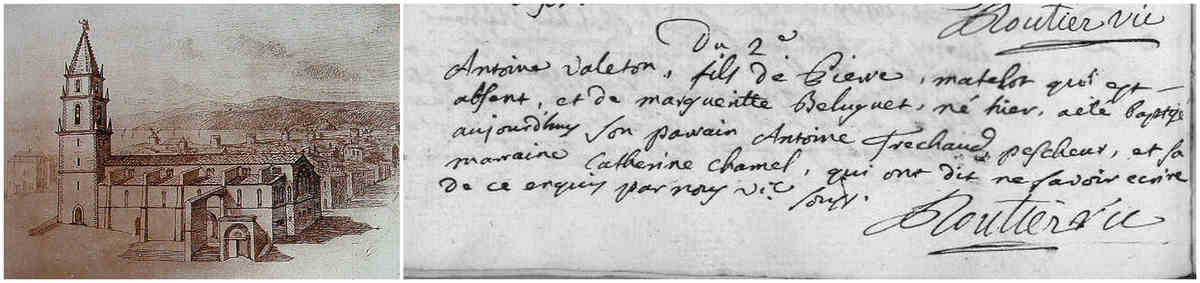 Routier vic
Du 2e
Antoine Valeton, fils de Pierre, matelot qui est
absent, et de margueritte Beluguet, né hier, a été Baptisé
aujourdhuy son parrain Antoine Trechaud pescheur, et sa
marraine Catherine Chamel, qui ont dit ne savoir ecrire
de ce enquis par nous vic. souss.
Routier vic